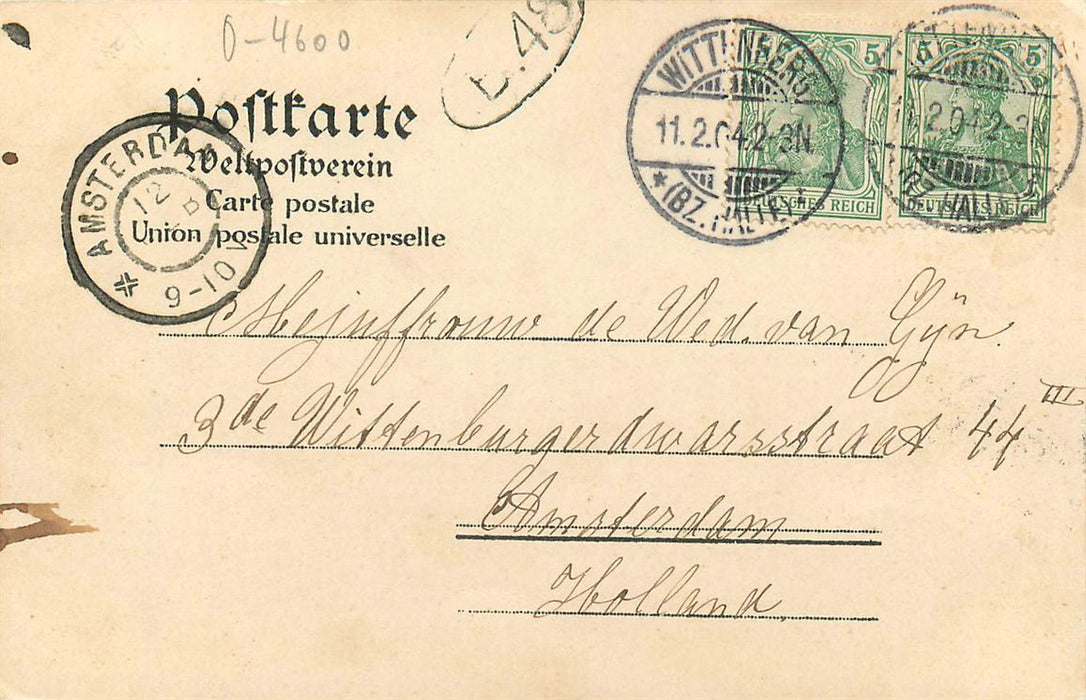 D-4600
B.48
Postkarte
Weltpostverein
Carte postale
Union postale universelle
AMSTERDAM
12
9-10V
WITTENBERG
11.2.04.2-3N
* (BZ. HALLE) *
5
DEUTSCHES REICH
5
DEUTSCHES REICH
11.2.04.2-3
(BZ. HALLE)
Mejuffrouw de Wed. van Gÿn.
3de Wittenburgerdwarsstraat 44 III
Amsterdam
Holland